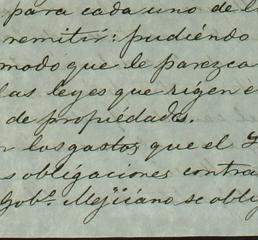 para cada uno de l
remitir: pudiéndo
modo que le parezca
las leyes que rigen e
de propiedads.
r los gastos que el
s obligaciones contra
Gobº. Mejicano se obly